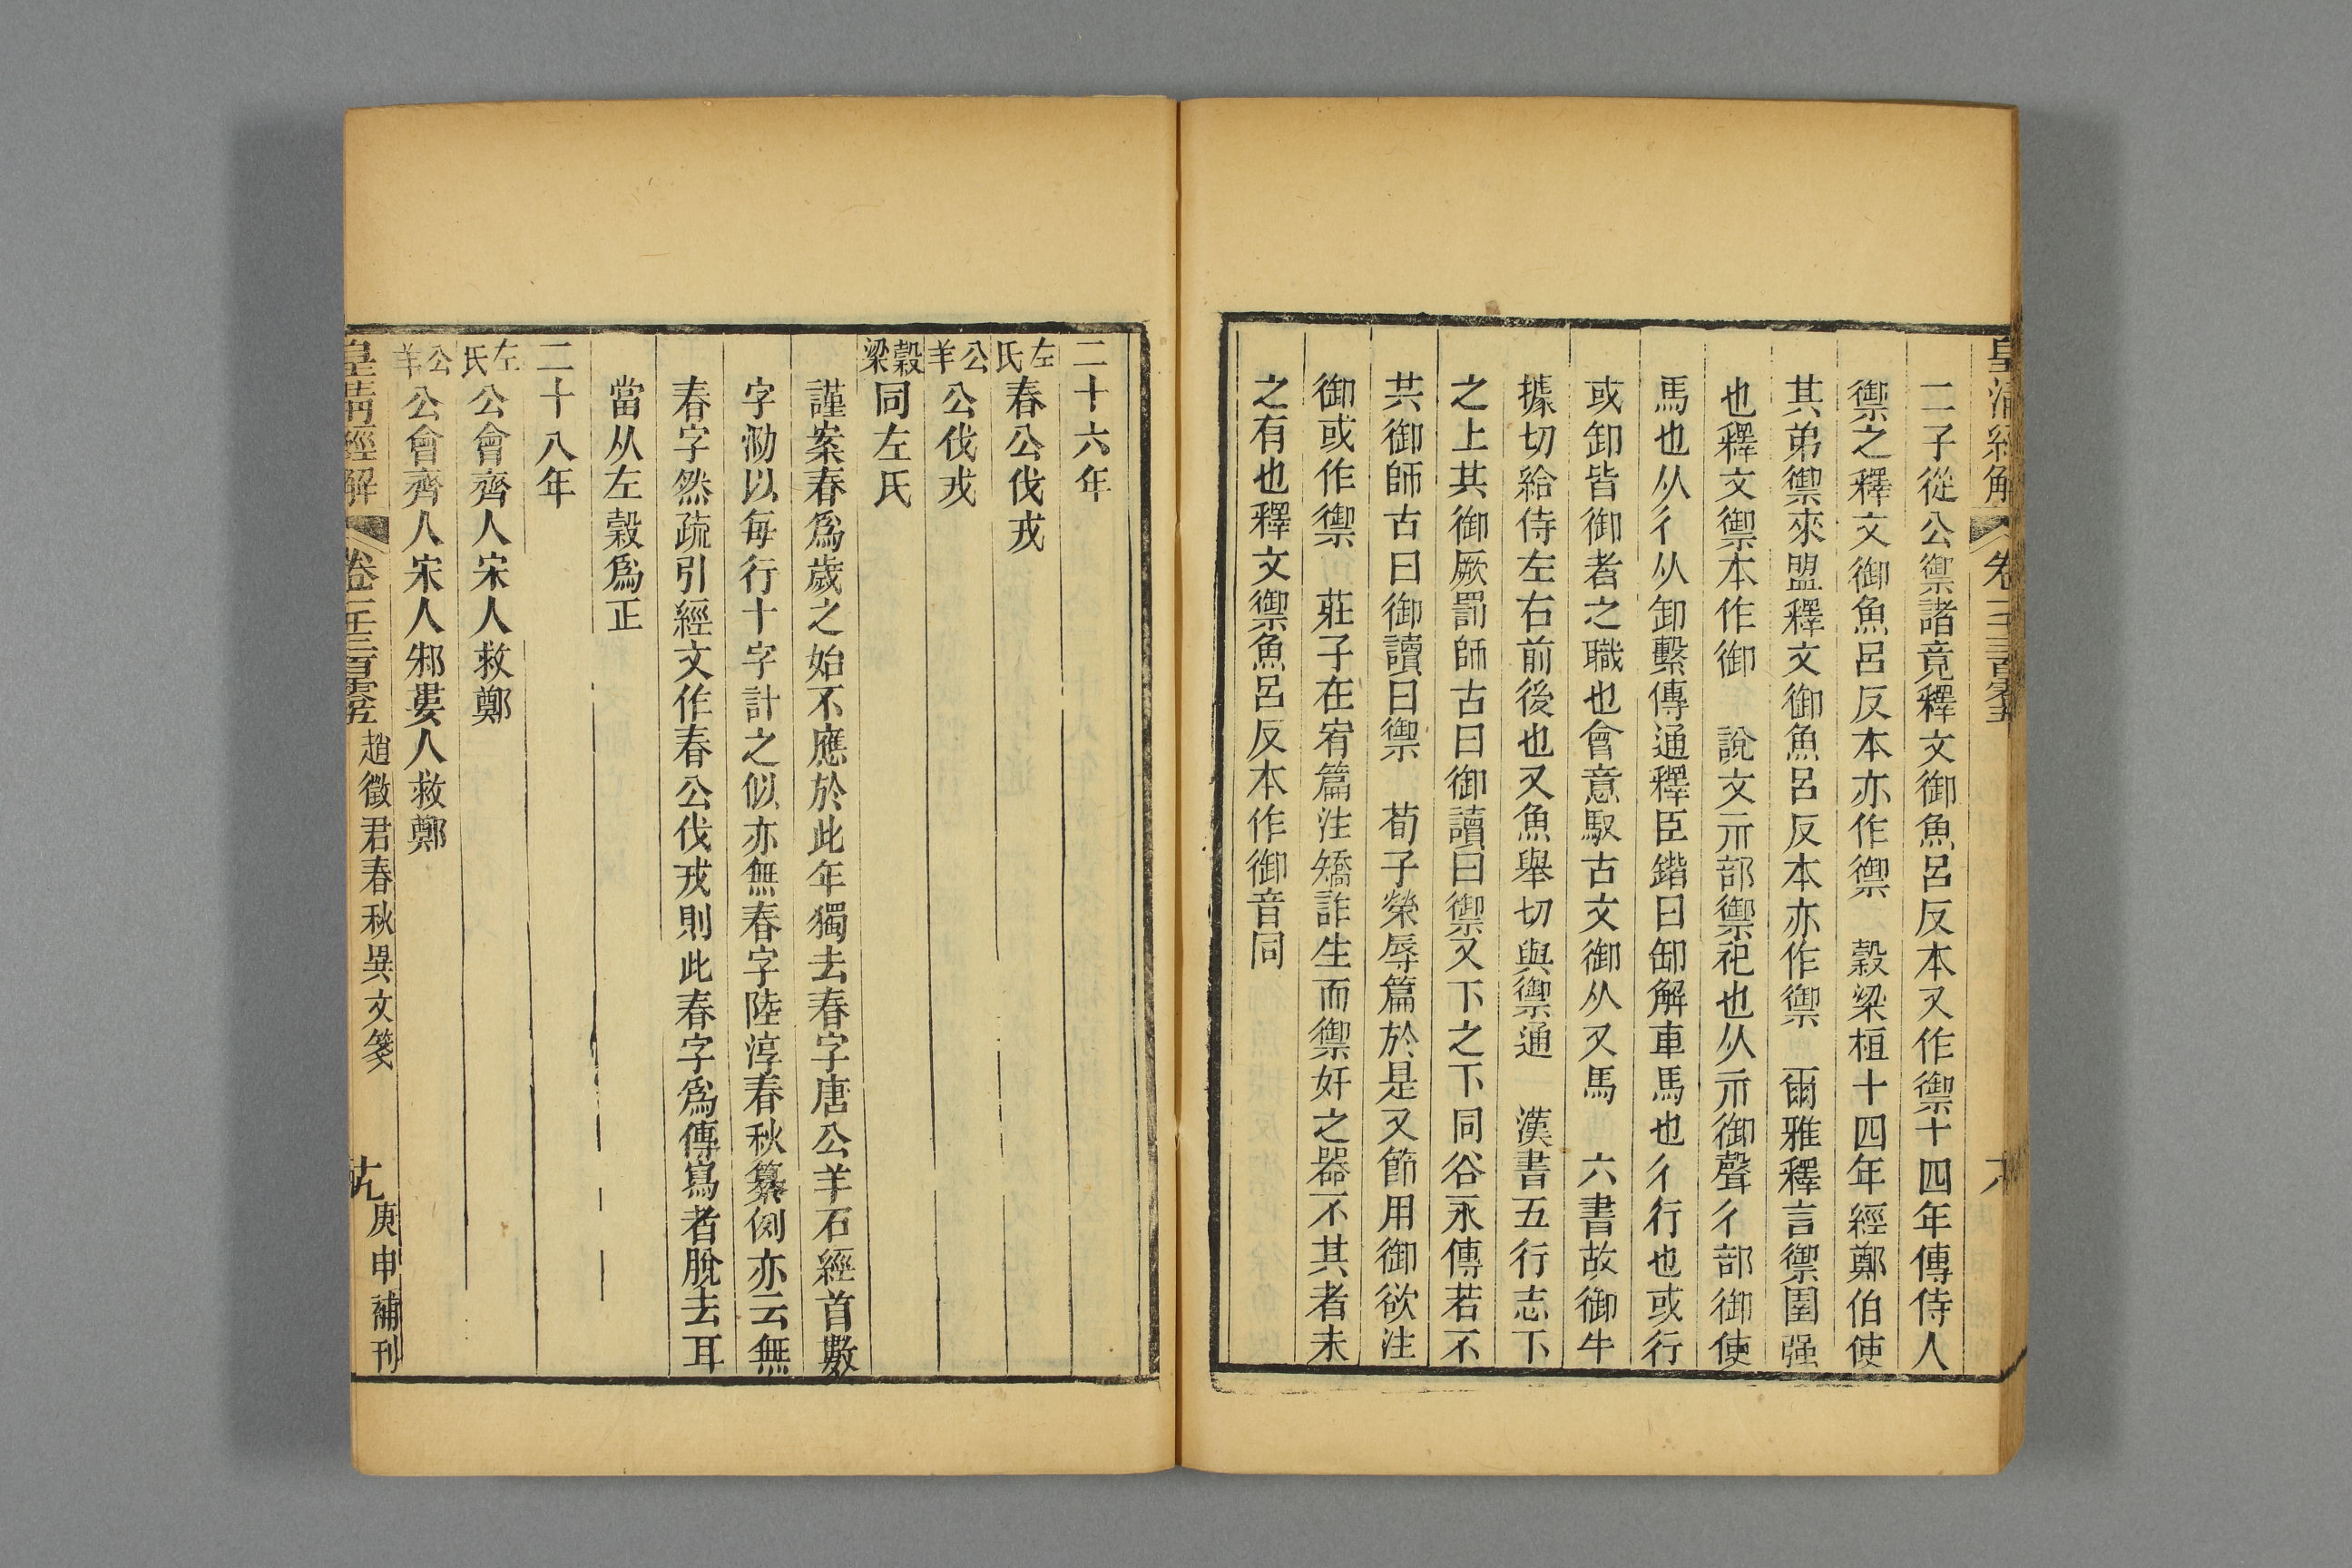 皇清經解 卷一千三百零五
二子從公禦諸竟釋文御魚呂反本又作禦十四年傳侍人
禦之釋文御魚呂反本亦作禦　穀梁桓十四年經鄭伯使
其弟禦來盟釋文御魚呂反本亦作禦　爾雅釋言禦圉强
也釋文禦本作御　說文示部禦祀也从示御聲彳部御使
馬也从彳从卸繫傳通釋臣鍇曰卸解車馬也彳行也或行
或卸皆御者之職也會意馭古文御从又馬　六書故御牛
據切給侍左右前後也又魚舉切與禦通　漢書五行志下
之上其御厥罰師古曰御讀曰禦又下之下同谷永傳若不
共御師古曰御讀曰禦　荀子榮辱篇於是又節用御欲注
御或作禦　莊子在宥篇注矯詐生而禦奸之器不其者未
之有也釋文禦魚呂反本作御音同
二十六年
左氏春公伐戎
公羊公伐戎
穀梁同左氏
謹案春爲歲之始不應於此年獨去春字唐公羊石經首數
字泐以每行十字計之似亦無春字陸淳春秋纂例亦云無
春字然疏引經文作春公伐戎則此春字爲傳寫者脫去耳
當从左穀爲正
二十八年
左氏公會齊人宋人救鄭
公羊公會齊人宋人邾婁人救鄭
皇清經解 卷一千三百零五 趙徵君春秋異文箋 庚申補刊